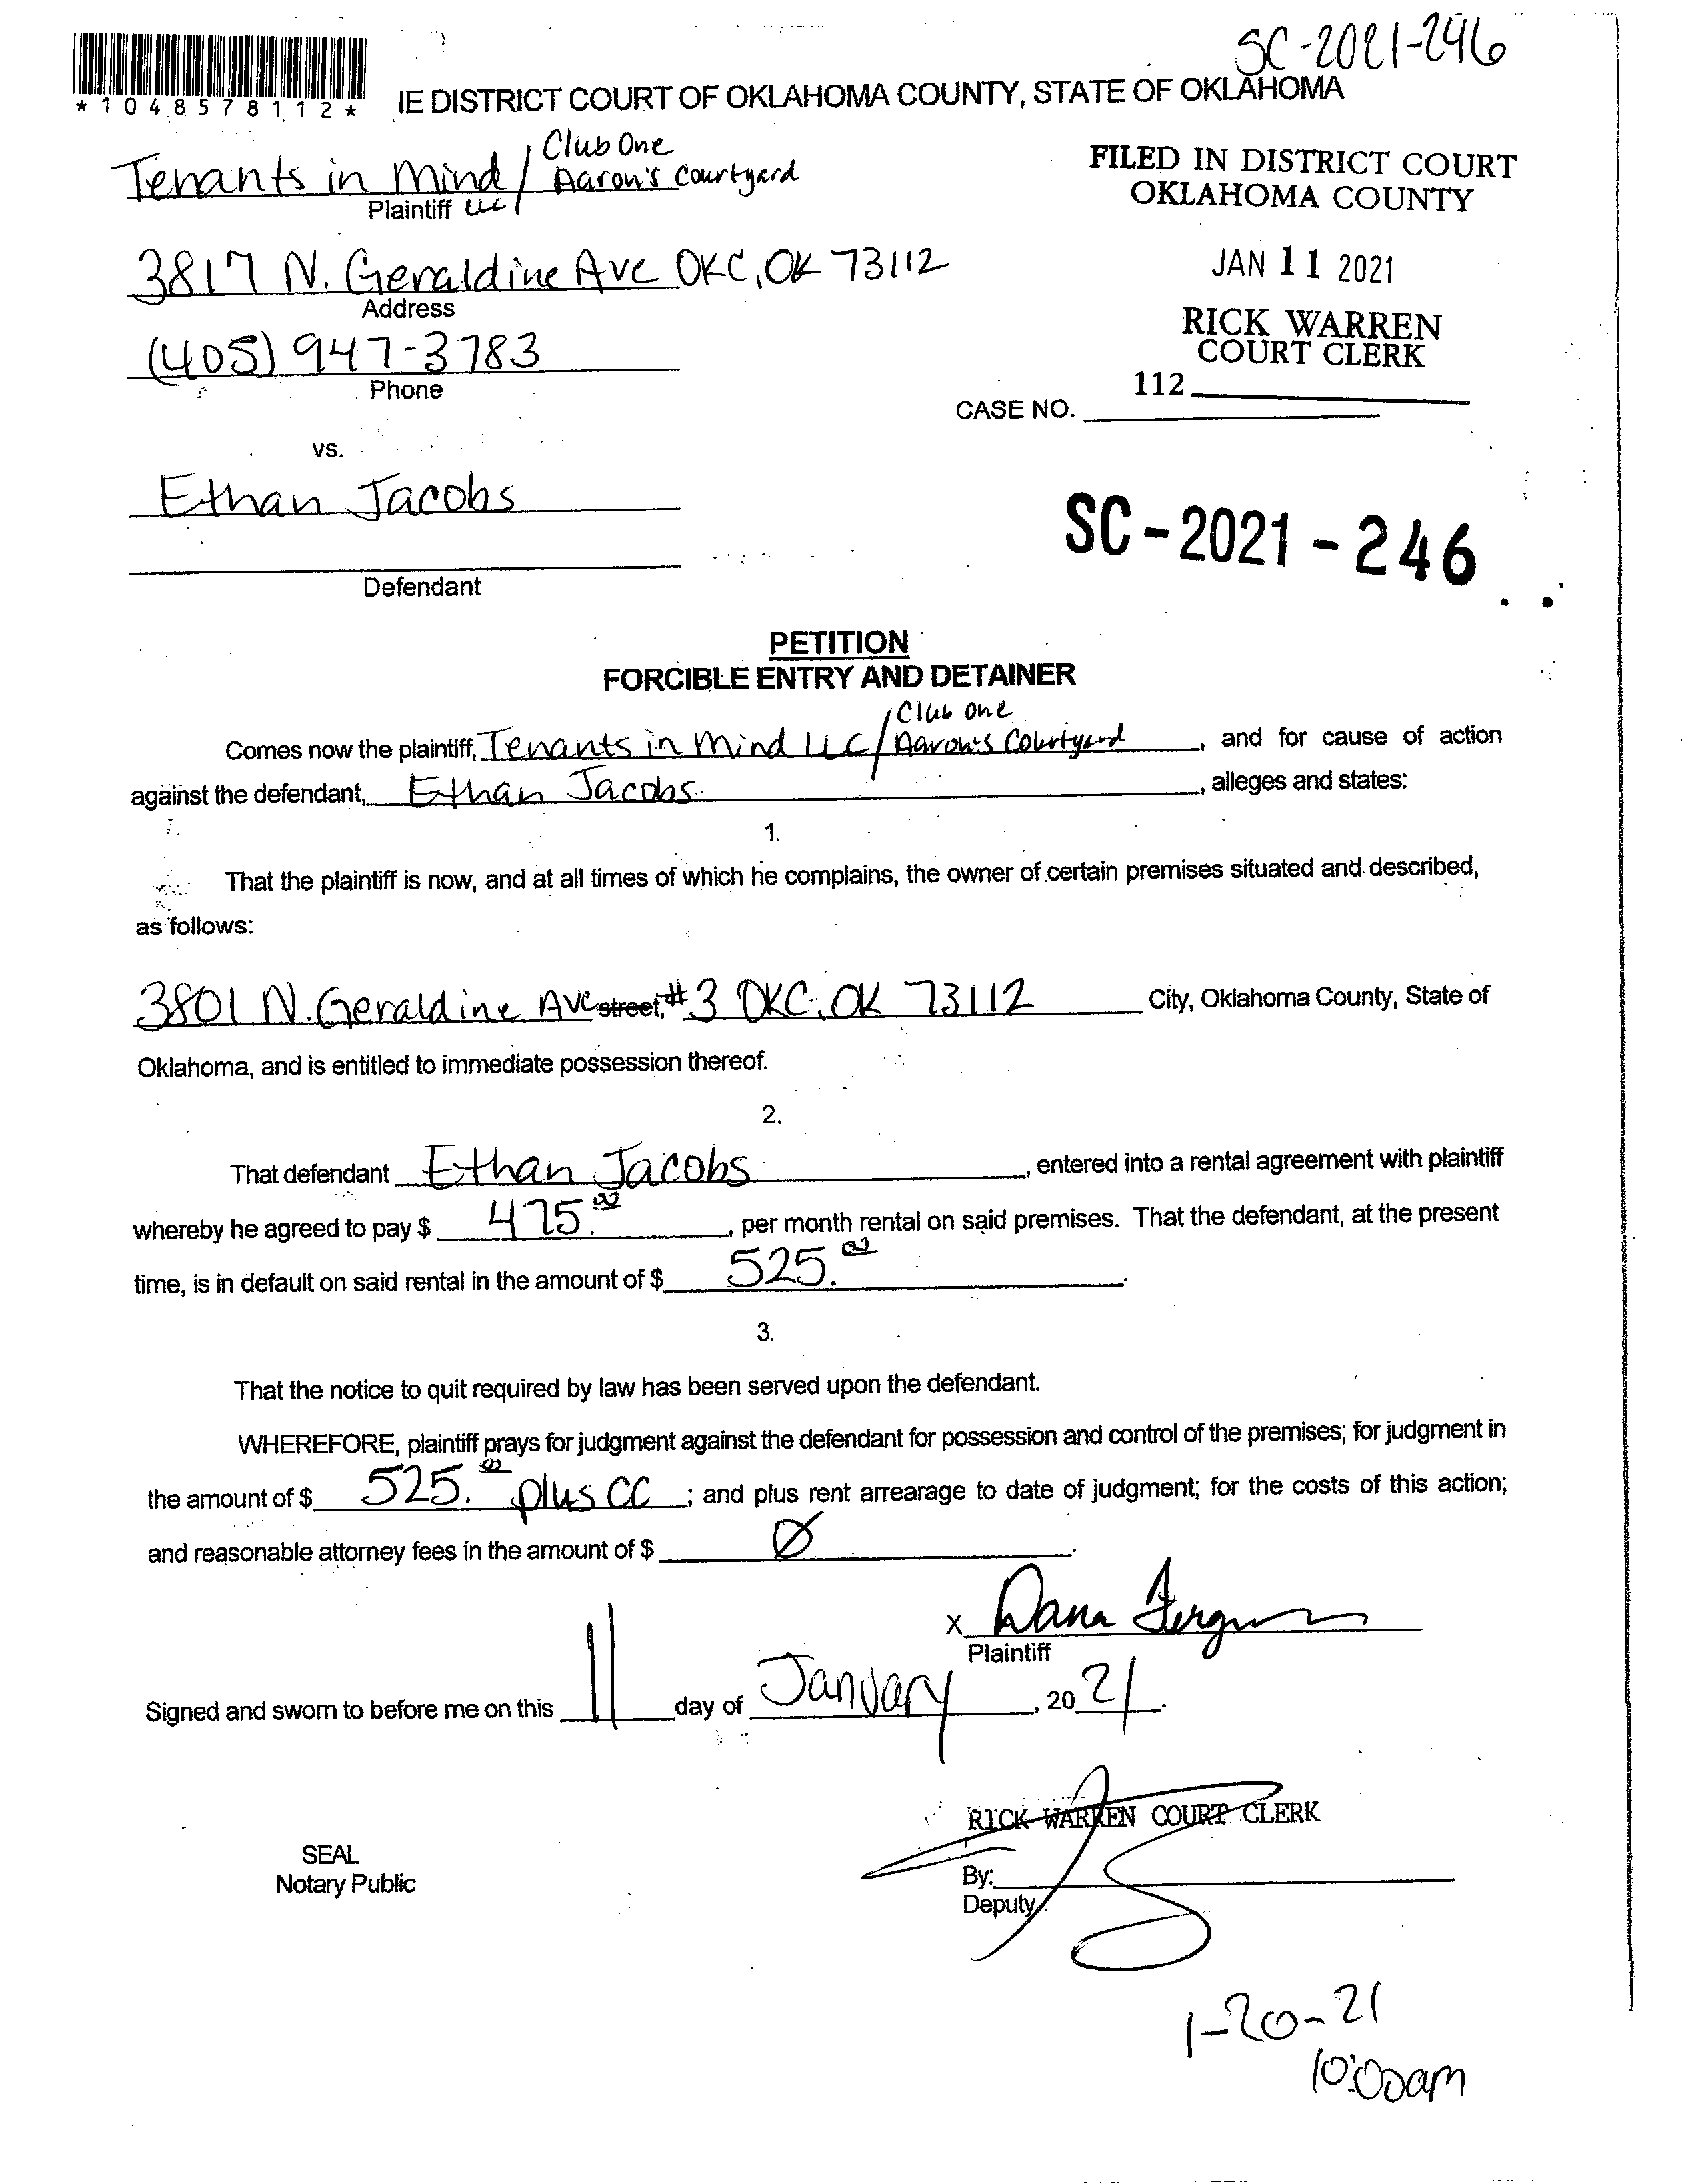 SC-2021-246
*1048578112*
IE DISTRICT COURT OF OKLAHOMA COUNTY, STATE OF OKLAHOMA
Club One
Tenants in Mind / Aaron's Courtyard
Plaintiff LLC
FILED IN DISTRICT COURT
OKLAHOMA COUNTY
3817 N. Geraldine Ave OKC, OK 73112
Address
JAN 11 2021
(405) 947-3783
Phone
RICK WARREN
COURT CLERK
112
CASE NO.
vs.
Ethan Jacobs
SC-2021-246
Defendant
PETITION
FORCIBLE ENTRY AND DETAINER
Club One
Comes now the plaintiff, Tenants in Mind LLC/ Aaron's Courtyard, and for cause of action
against the defendant, Ethan Jacobs, alleges and states:
1.
That the plaintiff is now, and at all times of which he complains, the owner of certain premises situated and described,
as follows:
3801 N. Geraldine Ave street, #3 OKC, OK 73112 City, Oklahoma County, State of
Oklahoma, and is entitled to immediate possession thereof.
2.
That defendant Ethan Jacobs, entered into a rental agreement with plaintiff
whereby he agreed to pay $ 475.00, per month rental on said premises. That the defendant, at the present
time, is in default on said rental in the amount of $ 525.00.
3.
That the notice to quit required by law has been served upon the defendant.
WHEREFORE, plaintiff prays for judgment against the defendant for possession and control of the premises; for judgment in
the amount of $ 525.00 plus CC; and plus rent arrearage to date of judgment; for the costs of this action;
and reasonable attorney fees in the amount of $ Ø.
X Dana Ferguson
Plaintiff
Signed and sworn to before me on this 11 day of January, 2021.
RICK WARREN COURT CLERK
SEAL
Notary Public
By:
Deputy
1-20-21
10:00am